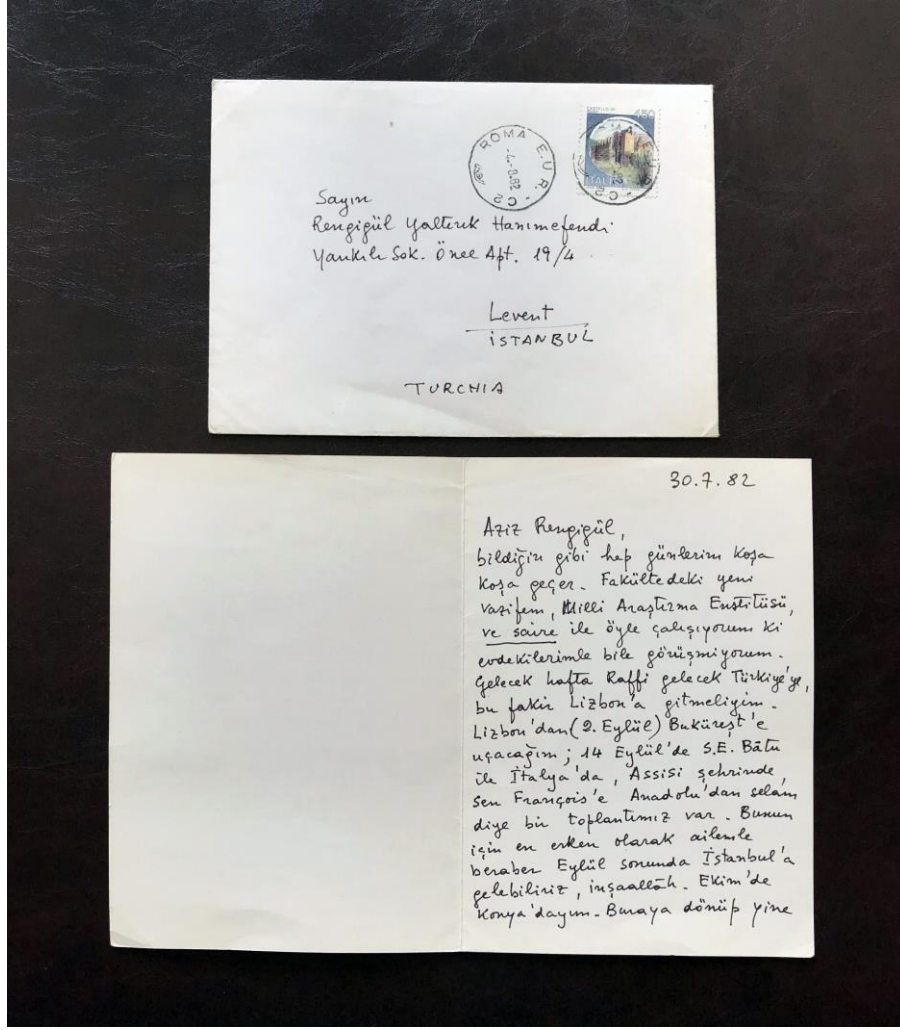 450
ITALIA
ROMA E.U.R. - C2
-4.-8.82
Sayın
Rengigül Yaltırık Hanımefendi
Yankılı Sok. Önce Apt. 19/4
Levent
İSTANBUL
TURCHIA
30.7.82
Aziz Rengigül,
bildiğin gibi hep günlerim koşa
koşa geçer. Fakültedeki yeni
vazifem, Milli Araştırma Enstitüsü,
ve saire ile öyle çalışıyorum ki
evdekilerimle bile görüşmiyorum.
Gelecek hafta Raffi gelecek Türkiye'ye,
bu fakir Lizbon'a gitmeliyim.
Lizbon'dan (2. Eylül) Buküreşt'e
uçacağım; 14 Eylül'de S.E. Bâtu
ile İtalya'da, Assisi şehrinde,
Sen François'e Anadolu'dan selâm
diye bir toplantımız var. Bunun
için en erken olarak ailemle
beraber Eylül sonunda İstanbul'a
gelebiliriz, inşaallāh. Ekim'de
Konya'dayım. Buraya dönüp yine